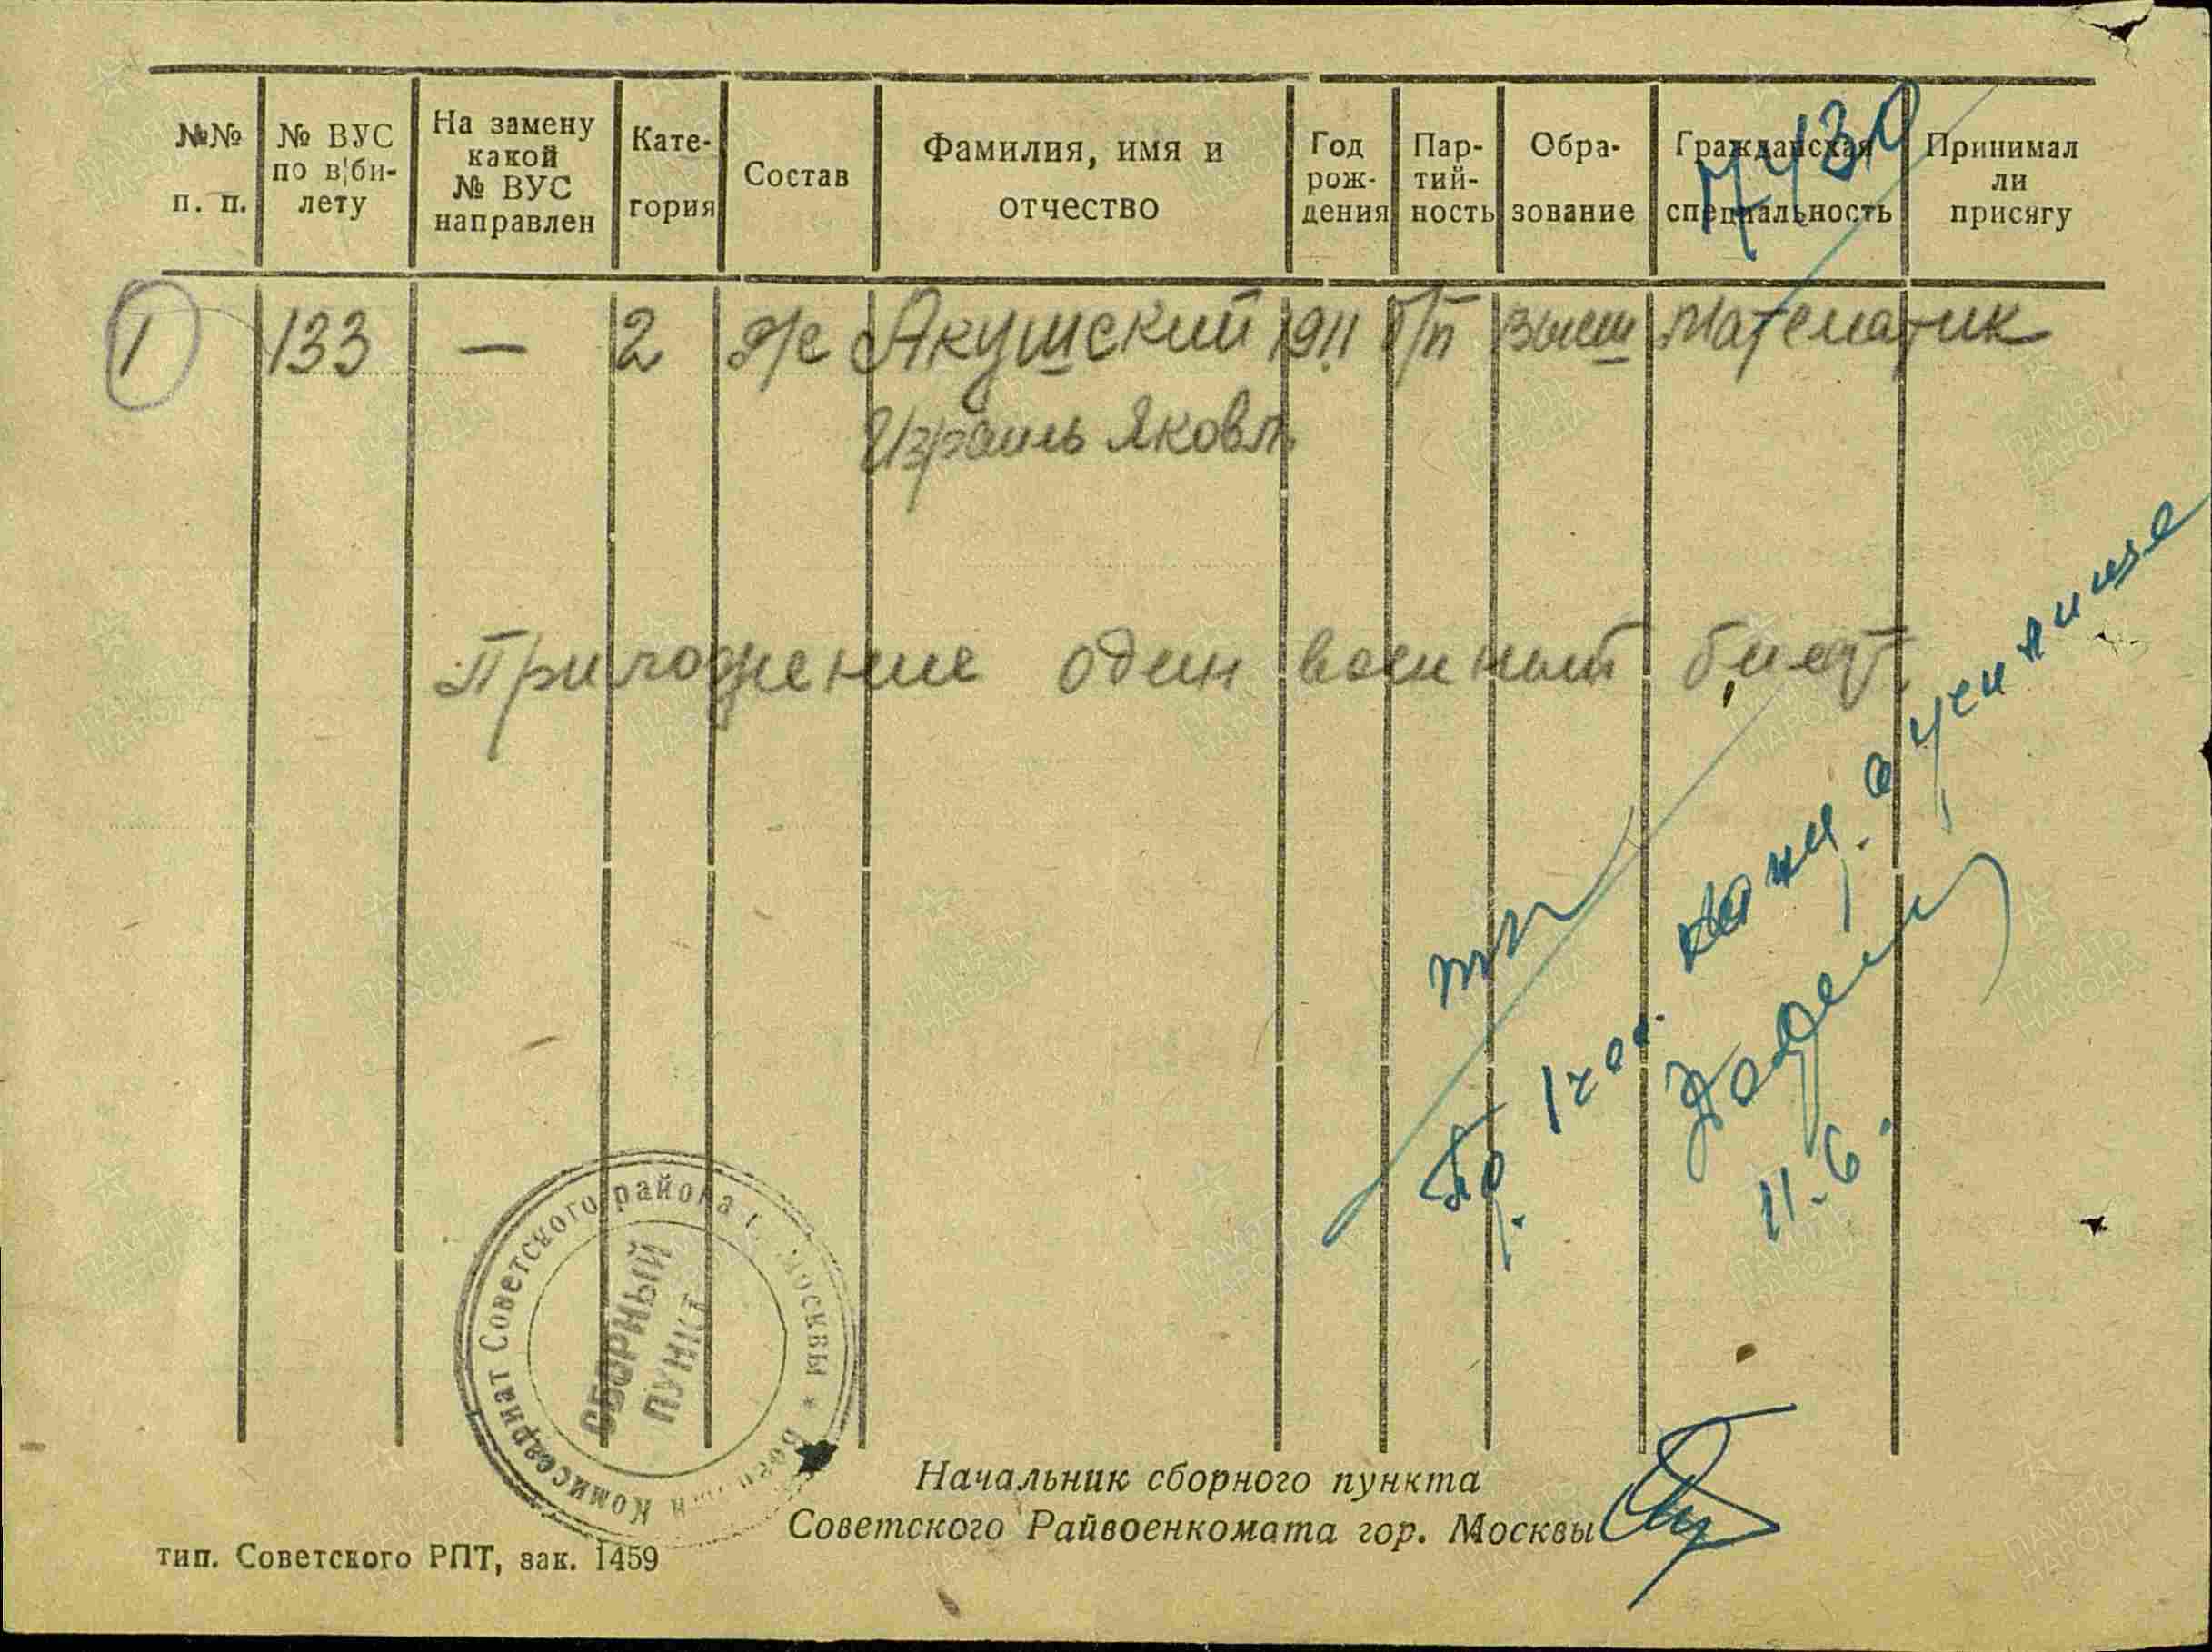 №№ п. п.
№ ВУС по в/билету
На замену какой № ВУС направлен
Кате-гория
Состав
Фамилия, имя и отчество
Год рож-дения
Пар-тий-ность
Обра-зование
Гражданская специальность
Принимал ли присягу
1 133 — 2 р/с Якушский 1911 б/п высш Математик
Израиль Яковл.
Приложение один военный билет.
училище
11.6.
Комиссариат Советского района г. Москвы
СБОРНЫЙ
ПУНКТ
Начальник сборного пункта
Советского Райвоенкомата гор. Москвы
тип. Советского РПТ, зак. 1459
ПАМЯТЬ НАРОДА